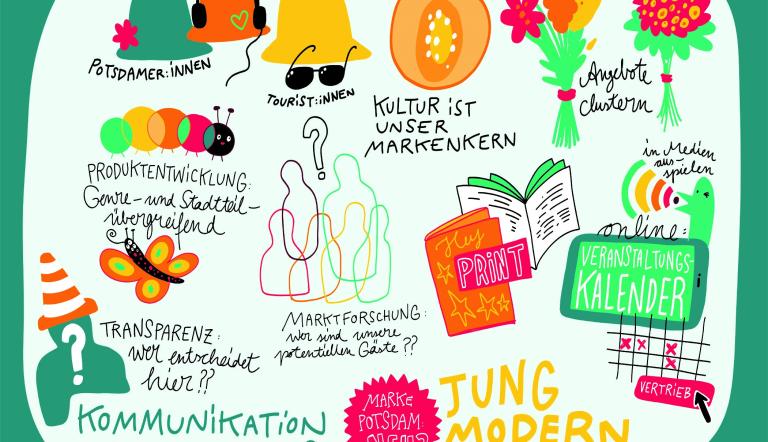 POTSDAMER:INNEN
TOURIST:INNEN
KULTUR iST
UNSER
MARKENKERN
Angebote
clustern
PRODUKTENTWICKLUNG:
Genre- und Stadtteil-
übergreifend
?
in Medien
aus-
spielen
Hey
PRINT
online:
VERANSTALTUNGS-
KALENDER
TRANSPARENZ:
wer entscheidet
hier??
?
MARKTFORSCHUNG:
wer sind unsere
potentiellen Gäste??
VERTRIEB
KOMMUNiKATiON
MARKE
POTSDAM:
JUNG
MODERN